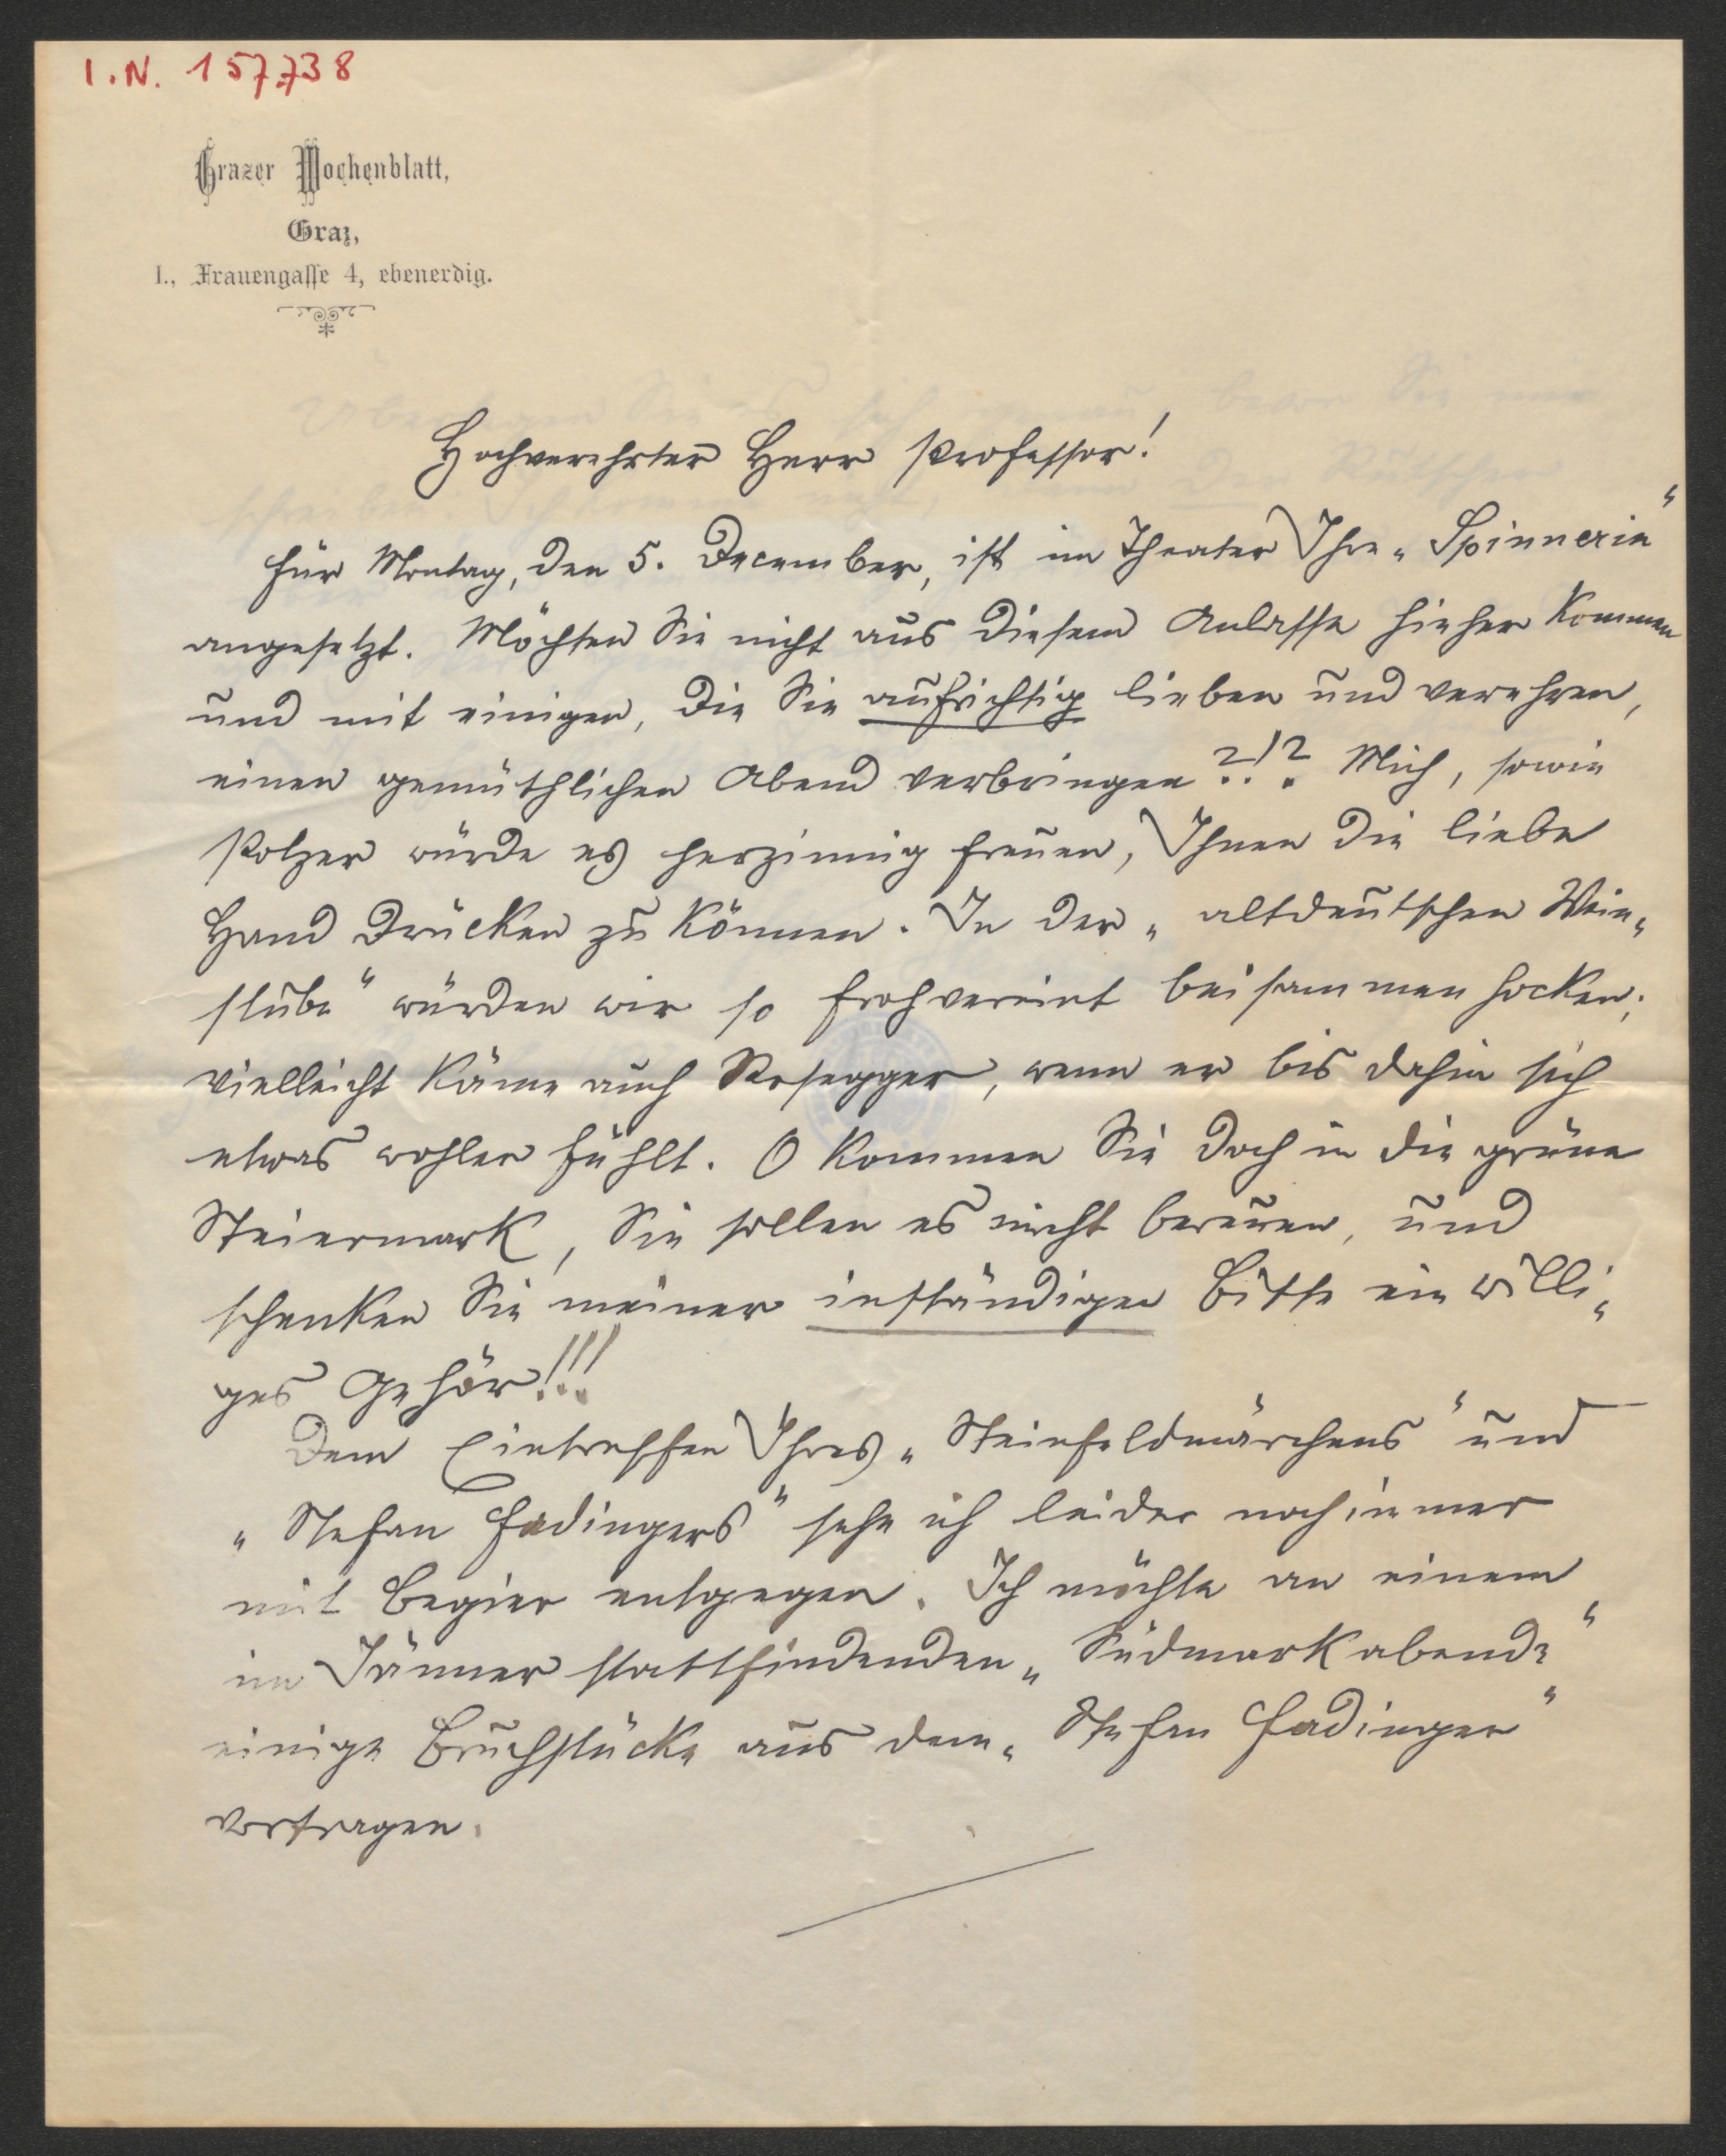 I.N. 157.738
Grazer Wochenblatt,
Graz,
I., Frauengasse 4, ebenerdig.
Hochverehrter Herr Professor!
Für Montag, den 5. December, ist im Theater Ihre „Spinnerin"
angesetzt. Möchten Sie nicht aus diesem Anlasse hieher kommen
und mit einigen, die Sie aufrichtig lieben und verehren,
einen gemüthlichen Abend verbringen?!? Mich, sowie
Polzer würde es herzinnig freuen, Ihnen die liebe
Hand drücken zu können. In der „altdeutschen Wein-
stube" würden wir so frohvereint beisammen hocken;
vielleicht käme auch Rosegger, wenn er bis dahin sich
etwas wohler fühlt. O kommen Sie doch in die grüne
Steiermark, Sie sollen es nicht bereuen, und
schenken Sie meiner inständigen Bitte ein willi-
ges Gehör!!!
Dem Eintreffen Ihres „Steinfeldmärchens" und
„Stefan Fadingers" sehe ich leider noch immer
mit Begier entgegen. Ich möchte an einem
im Jänner stattfindenden „Südmarkabende"
einige Bruchstücke aus dem „Stefan Fadinger"
vortragen.